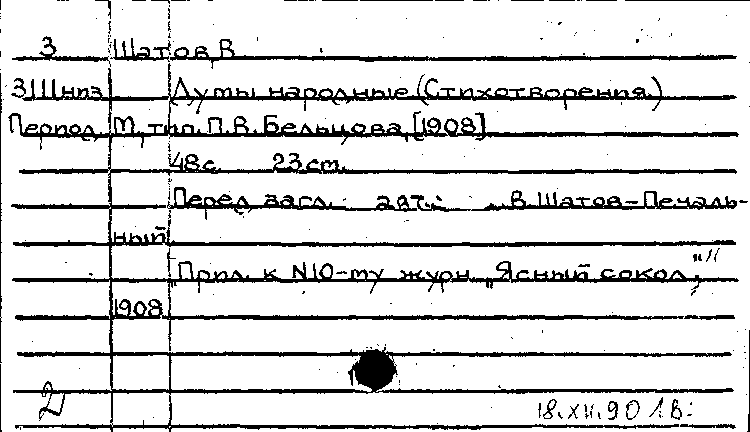 3 Шатов, В.
3IIIнпз Думы народные (Стихотворения)
Период. М, тип. П.В. Бельцова, [1908]
48 с. 23 ст.
Перед загл. авт.: В. Шатов-Печаль-
ный
"Прил. к N10-му журн. „Ясный сокол",
1908
2 18.XII.90